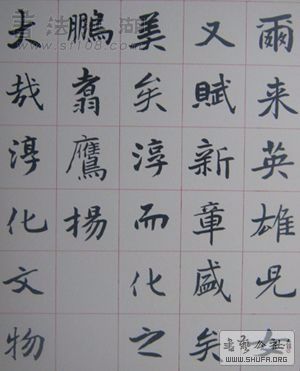 爾来英雄兒女
又賦新章盛矣
美矣淳而化之
鵬翥鷹揚
大哉淳化文物
www.sf108.com
书艺公社
WWW.SHUFA.ORG